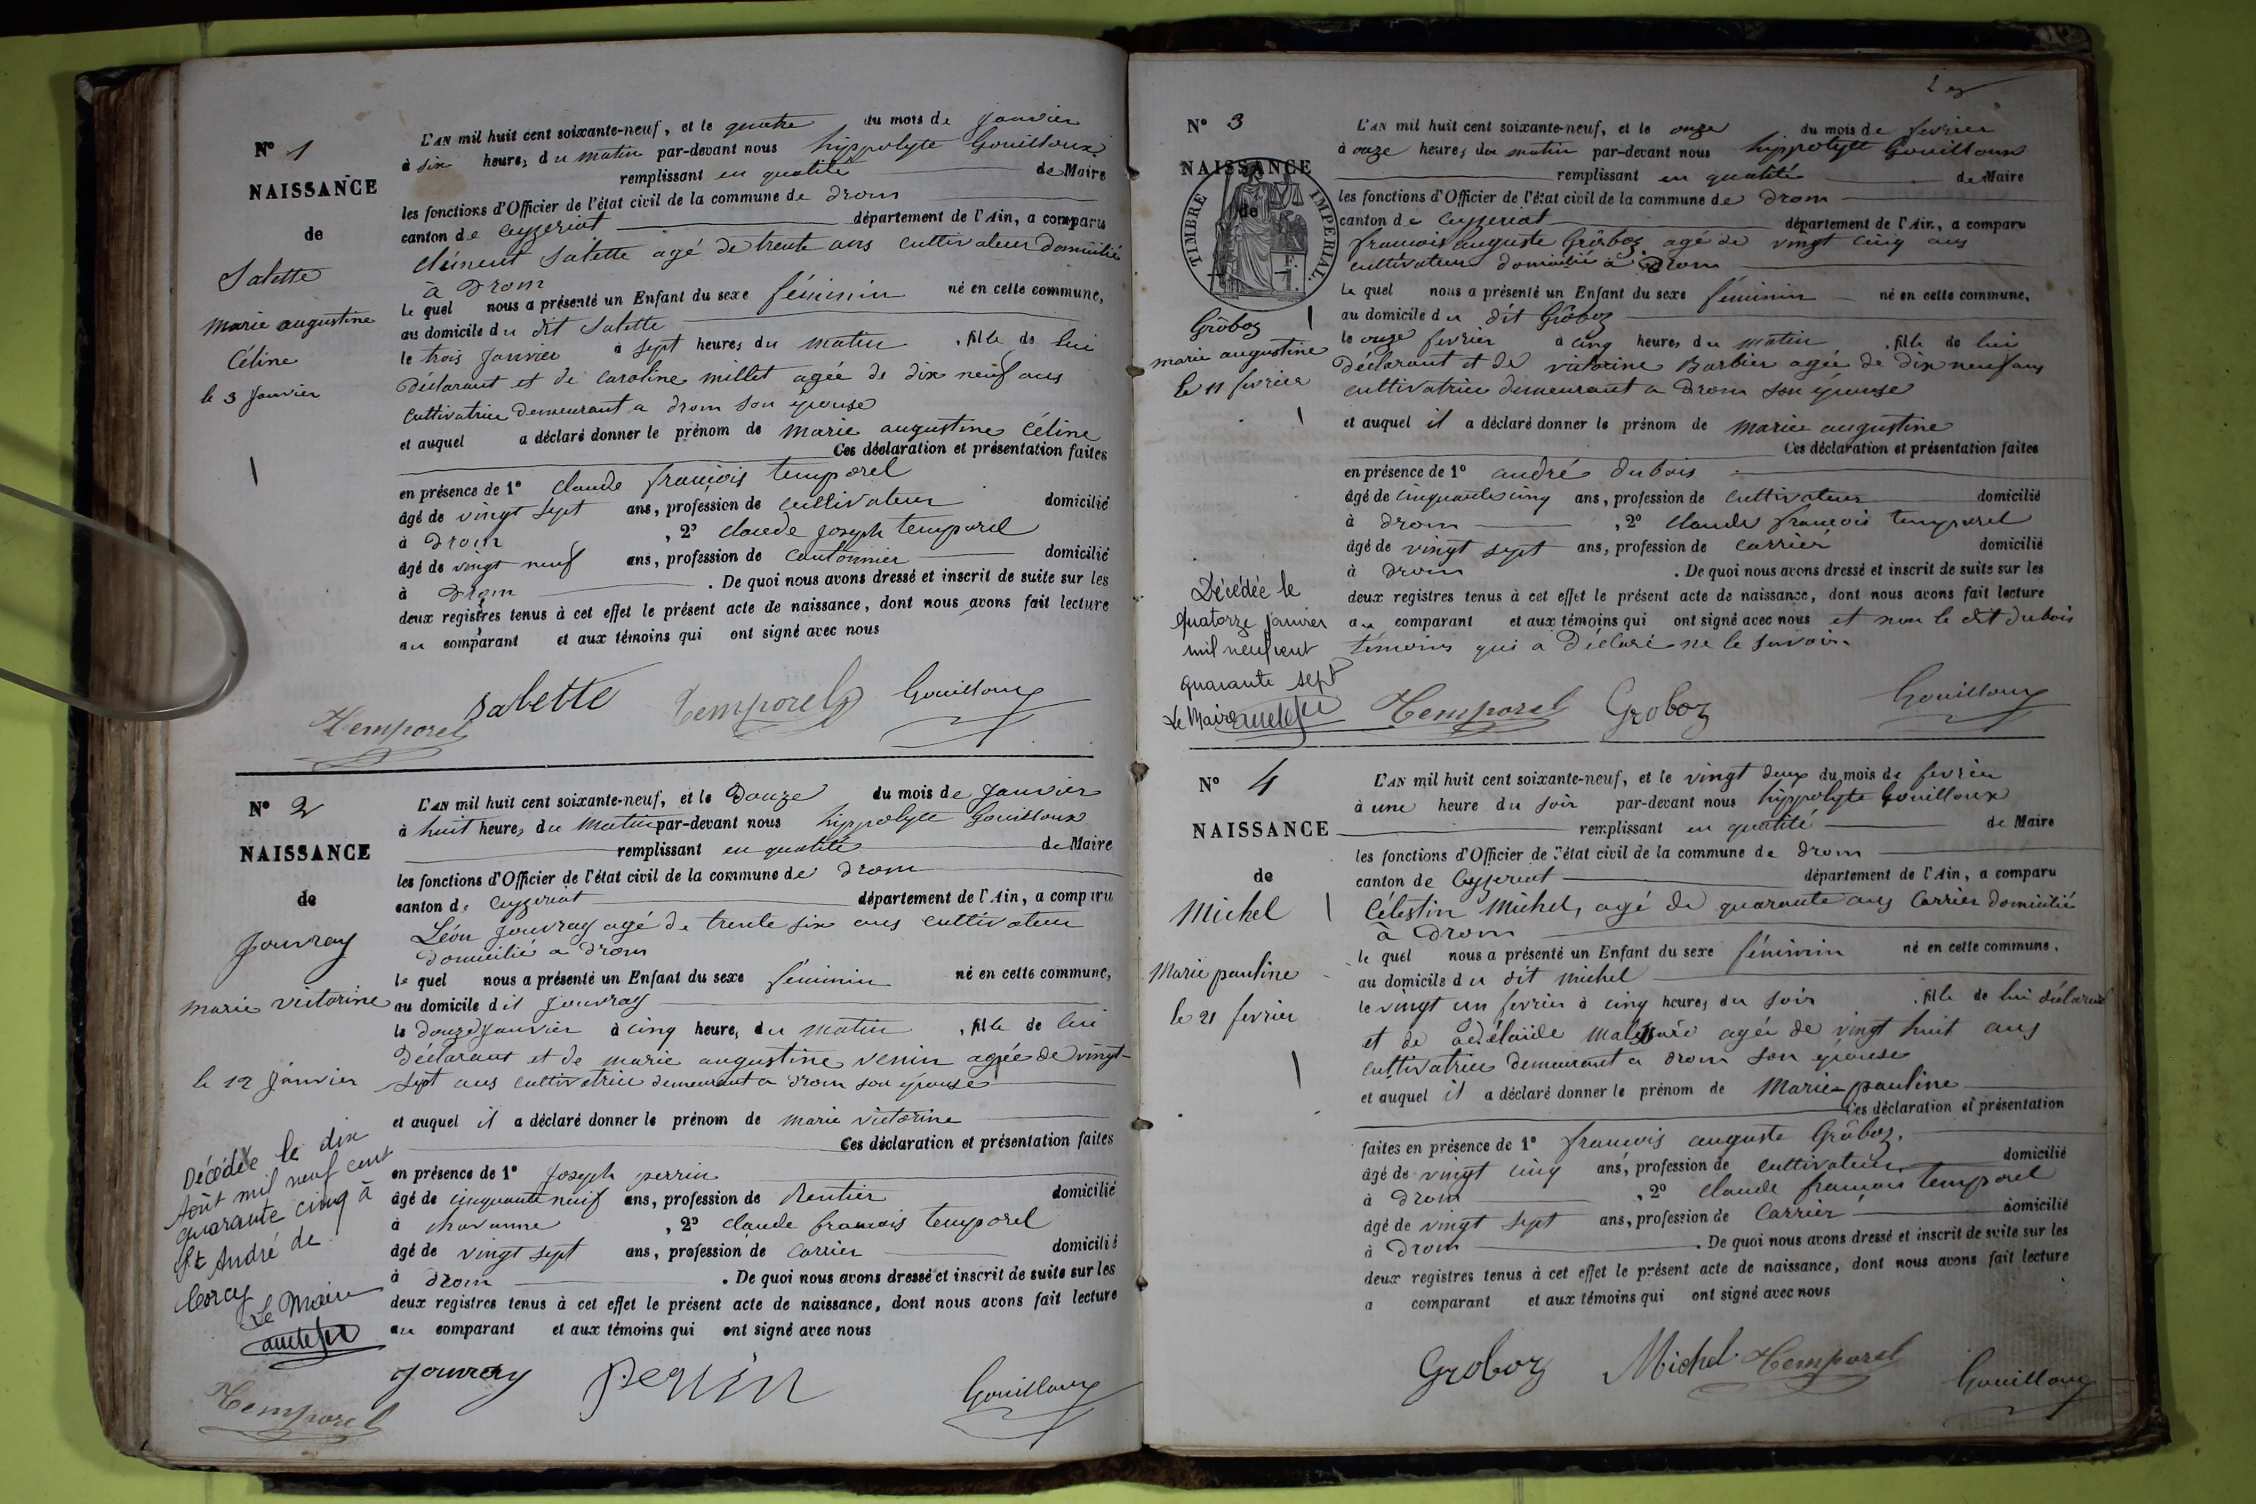 N° 1
NAISSANCE
de
Salette
marie augustine
Céline
le 3 janvier
L'AN mil huit cent soixante-neuf, et le quatre du mois de janvier
à dix heures du matin par-devant nous hyppolyte Gouilloux
remplissant en qualité de Maire
les fonctions d'Officier de l'état civil de la commune de drom
canton de Ceyzeriat département de l'Ain, a comparu
clément Salette agé de trente ans cultivateur domicilié
à drom
le quel nous a présenté un Enfant du sexe féminin né en cette commune,
au domicile du dit Salette
le trois janvier à sept heures du matin , fille de lui
déclarant et de caroline millet agée de dix neuf ans
cultivatrice demeurant a drom son épouse
et auquel a déclaré donner le prénom de marie augustine Céline
Ces déclaration et présentation faites
en présence de 1° claude françois temporel
âgé de vingt sept ans, profession de cultivateur domicilié
à drom , 2° claude joseph temporel
âgé de vingt neuf ans, profession de cantonnier domicilié
à drom . De quoi nous avons dressé et inscrit de suite sur les
deux registres tenus à cet effet le présent acte de naissance, dont nous avons fait lecture
au comparant et aux témoins qui ont signé avec nous
Temporel Salette Temporel Gouilloux
N° 2
NAISSANCE
de
Jouvray
marie victorine
le 12 janvier
Décédée le dix
Août mil neuf cent
quarante cinq à
St André de
Corcy
Le Maire
L'AN mil huit cent soixante-neuf, et le douze du mois de janvier
à huit heures du matin par-devant nous hyppolyte Gouilloux
remplissant en qualité de Maire
les fonctions d'Officier de l'état civil de la commune de drom
canton de Ceyzeriat département de l'Ain, a comparu
Léon Jouvray agé de trente six ans cultivateur
domicilié a drom
le quel nous a présenté un Enfant du sexe féminin né en cette commune,
au domicile dit Jouvray
le douze janvier à cinq heures du matin , fille de lui
déclarant et de marie augustine venin agée de vingt
sept ans cultivatrice demeurant a drom son épouse
et auquel il a déclaré donner le prénom de marie victorine
Ces déclaration et présentation faites
en présence de 1° joseph perrin
âgé de cinquante neuf ans, profession de Rentier domicilié
à chavanne , 2° claude françois temporel
âgé de vingt sept ans, profession de carrier domicilié
à drom . De quoi nous avons dressé et inscrit de suite sur les
deux registres tenus à cet effet le présent acte de naissance, dont nous avons fait lecture
au comparant et aux témoins qui ont signé avec nous
Temporel Jouvray perrin Gouilloux
N° 3
NAISSANCE
de
TIMBRE IMPÉRIAL.
F.
1.
Gröboz
marie augustine
le 11 fevrier
Décédée le
quatorze janvier
mil neuf cent
quarante sept
Le Maire
L'AN mil huit cent soixante-neuf, et le onze du mois de fevrier
à onze heures du matin par-devant nous hyppolyte Gouilloux
remplissant en qualité de Maire
les fonctions d'Officier de l'état civil de la commune de drom
canton de Ceyzeriat département de l'Ain, a comparu
francois auguste Gröboz agé de vingt cinq ans
cultivateur domicilié à Drom
le quel nous a présenté un Enfant du sexe féminin né en cette commune,
au domicile du dit Gröboz
le onze fevrier à cinq heures du matin , fille de lui
déclarant et de victorine Barbier agée de dix neuf ans
cultivatrice demeurant a Drom son épouse
et auquel il a déclaré donner le prénom de marie augustine
Ces déclaration et présentation faites
en présence de 1° andré dubois
âgé de cinquante cinq ans, profession de cultivateur domicilié
à drom , 2° claude françois temporel
âgé de vingt sept ans, profession de carrier domicilié
à drom . De quoi nous avons dressé et inscrit de suite sur les
deux registres tenus à cet effet le présent acte de naissance, dont nous avons fait lecture
au comparant et aux témoins qui ont signé avec nous et non le dit dubois
témoins qui a déclaré ne le savoir
Temporel Groboz Gouilloux
N° 4
NAISSANCE
de
Michel
Marie pauline
le 21 fevrier
L'AN mil huit cent soixante-neuf, et le vingt deux du mois de fevrier
à une heure du soir par-devant nous hyppolyte Gouilloux
remplissant en qualité de Maire
les fonctions d'Officier de l'état civil de la commune de drom
canton de Ceyzeriat département de l'Ain, a comparu
Célestin Michel, agé de quarante ans Carrier domicilié
à Drom
le quel nous a présenté un Enfant du sexe féminin né en cette commune,
au domicile du dit michel
le vingt un fevrier à cinq heures du soir , fille de lui déclarant
et de adélaïde agée de vingt huit ans
cultivatrice demeurant a drom son épouse
et auquel il a déclaré donner le prénom de Marie-pauline
Ces déclaration et présentation
faites en présence de 1° francois auguste Gröboz
âgé de vingt cinq ans, profession de cultivateur domicilié
à drom , 2° claude francois temporel
âgé de vingt sept ans, profession de Carrier domicilié
à drom . De quoi nous avons dressé et inscrit de suite sur les
deux registres tenus à cet effet le présent acte de naissance, dont nous avons fait lecture
a comparant et aux témoins qui ont signé avec nous
Groboz Michel Temporel Gouilloux